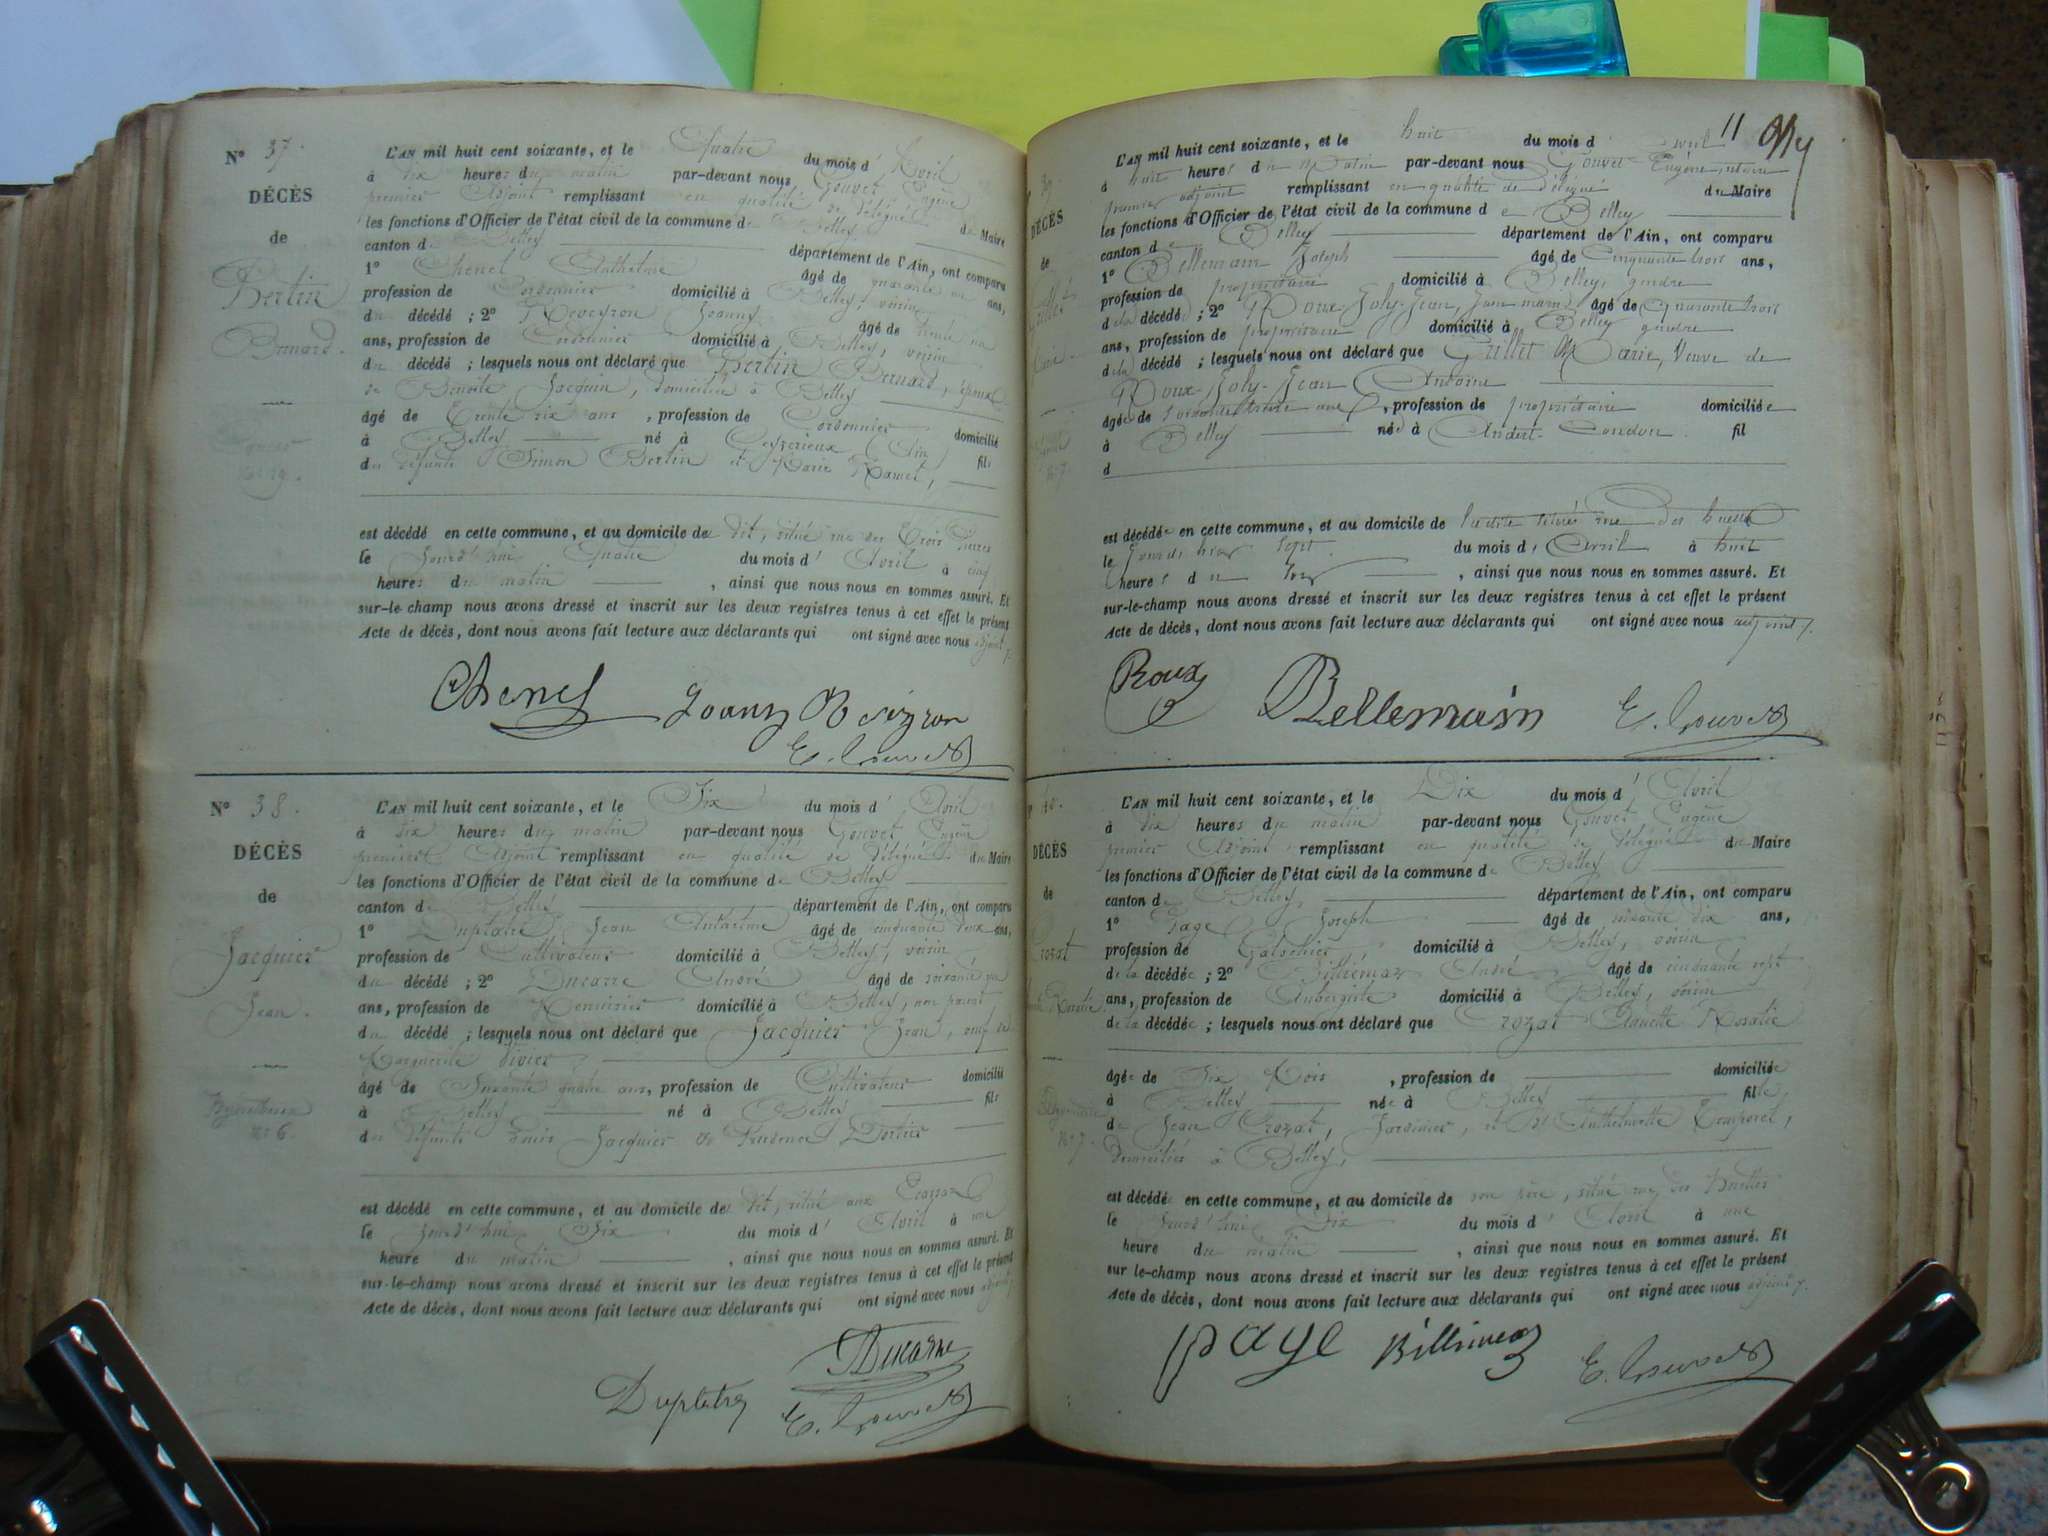 N° 37.
DÉCÈS
de
Bertin
Bernard.
L'AN mil huit cent soixante, et le Quatre du mois d'Avril
à dix heures du matin par-devant nous Gouvet Eugène
premier Adjoint remplissant en qualité de délégué du Maire
les fonctions d'Officier de l'état civil de la commune de Belley
canton de Belley département de l'Ain, ont comparu
1° Chenel Anthelme âgé de quarante un ans,
profession de Cordonnier domicilié à Belley, voisin
du décédé ; 2° Reveyron Joanny âgé de trente un
ans, profession de Cordonnier domicilié à Belley, voisin
du décédé ; lesquels nous ont déclaré que Bertin Bernard, époux
de Benoîte Jacquin, domiciliée à Belley
âgé de Trente six ans, profession de Cordonnier domicilié
à Belley né à Ceyzérieux (Ain) fils
des défunts Simon Bertin et Marie Ramet,
est décédé en cette commune, et au domicile de dit, situé rue des Trois
le jourd'hui Quatre du mois d'Avril à cinq
heures du matin , ainsi que nous nous en sommes assuré. Et
sur-le-champ nous avons dressé et inscrit sur les deux registres tenus à cet effet le présent
Acte de décès, dont nous avons fait lecture aux déclarants qui ont signé avec nous adjoint
Chenel Joanny Reveyron
E. Gouvet
N° 38.
DÉCÈS
de
Jacquier
Jean.
n° 6.
L'AN mil huit cent soixante, et le Six du mois d'Avril
à dix heures du matin par-devant nous Gouvet Eugène
premier Adjoint remplissant en qualité de délégué du Maire
les fonctions d'Officier de l'état civil de la commune de Belley
canton de Belley département de l'Ain, ont comparu
1° Duplatre Jean Anthelme âgé de cinquante deux ans,
profession de Cultivateur domicilié à Belley, voisin
du décédé ; 2° Ducarre André âgé de soixante
ans, profession de Menuisier domicilié à Belley, non parent
du décédé ; lesquels nous ont déclaré que Jacquier Jean, veuf de
Marguerite
âgé de Soixante quatre ans, profession de Cultivateur domicilié
à Belley né à Belley fils
des défunts Jacquier et Prudence
est décédé en cette commune, et au domicile de dit, situé aux
le jourd'hui Six du mois d'Avril à une
heure du matin , ainsi que nous nous en sommes assuré. Et
sur-le-champ nous avons dressé et inscrit sur les deux registres tenus à cet effet le présent
Acte de décès, dont nous avons fait lecture aux déclarants qui ont signé avec nous adjoint
Ducarre
Duplatre E. Gouvet
11
39
DÉCÈS
de
L'AN mil huit cent soixante, et le huit du mois d'avril
à huit heures du Matin par-devant nous Gouvet Eugène, notaire
premier adjoint remplissant en qualité de délégué du Maire
les fonctions d'Officier de l'état civil de la commune de Belley
canton de Belley département de l'Ain, ont comparu
1° Bellemain Joseph âgé de Cinquante trois ans,
profession de propriétaire domicilié à Belley, gendre
de la décédé ; 2° Roux-Joly-Jean, Jean marie âgé de Quarante trois
ans, profession de propriétaire domicilié à Belley gendre
de la décédé ; lesquels nous ont déclaré que Grillet Marie, Veuve de
Roux-Joly-Jean Antoine
âgée de soixante treize ans, profession de propriétaire domiciliée
à Belley née à Andert-Condon fil
d
est décédée en cette commune, et au domicile de située rue des huelle
le jour d'hier sept du mois d'Avril à huit
heures du soir , ainsi que nous nous en sommes assuré. Et
sur-le-champ nous avons dressé et inscrit sur les deux registres tenus à cet effet le présent
Acte de décès, dont nous avons fait lecture aux déclarants qui ont signé avec nous adjoint
Roux Bellemain E. Gouvet
40.
DÉCÈS
de
Crozat
Rosalie.
n° 7.
L'AN mil huit cent soixante, et le Dix du mois d'Avril
à dix heures du matin par-devant nous Gouvet Eugène
premier Adjoint remplissant en qualité de délégué du Maire
les fonctions d'Officier de l'état civil de la commune de Belley
canton de Belley, département de l'Ain, ont comparu
1° Page Joseph âgé de soixante dix ans,
profession de Galochier domicilié à Belley, voisin
de la décédée ; 2° Billiémaz André âgé de cinquante sept
ans, profession de Aubergiste domicilié à Belley, voisin
de la décédée ; lesquels nous ont déclaré que Crozat Claudette Rosalie
âgée de Six Mois , profession de domiciliée
à Belley née à Belley fille
de Jean Crozat, Jardinier, et d'Anthelmette Temporel,
domiciliés à Belley,
est décédée en cette commune, et au domicile de son père, situé rue des Huelles
le jourd'hui Dix du mois d'Avril à une
heure du matin , ainsi que nous nous en sommes assuré. Et
sur-le-champ nous avons dressé et inscrit sur les deux registres tenus à cet effet le présent
Acte de décès, dont nous avons fait lecture aux déclarants qui ont signé avec nous adjoint
page Billiemaz E. Gouvet